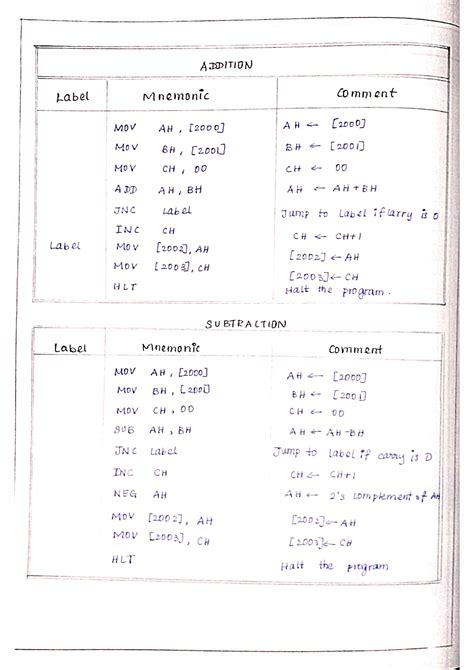 ADDITION
Label Mnemonic Comment
MOV AH, [2000] AH ← [2000]
MOV BH, [2001] BH ← [2001]
MOV CH, 00 CH ← 00
ADD AH, BH AH ← AH+BH
JNC Label Jump to Label if Carry is 0
INC CH CH ← CH+1
Label MOV [2002], AH [2002] ← AH
MOV [2003], CH [2003] ← CH
HLT Halt the program.
SUBTRACTION
Label Mnemonic Comment
MOV AH, [2000] AH ← [2000]
MOV BH, [2001] BH ← [2001]
MOV CH, 00 CH ← 00
SUB AH, BH AH ← AH-BH
JNC Label Jump to label if carry is 0
INC CH CH ← CH+1
NEG AH AH ← 2's complement of AH
MOV [2002], AH [2002] ← AH
MOV [2003], CH [2003] ← CH
HLT Halt the program